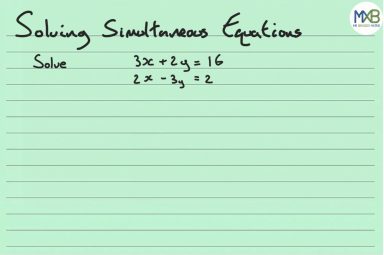 Solving Simultaneous Equations
MXB
Solve 3x + 2y = 16
2x - 3y = 2